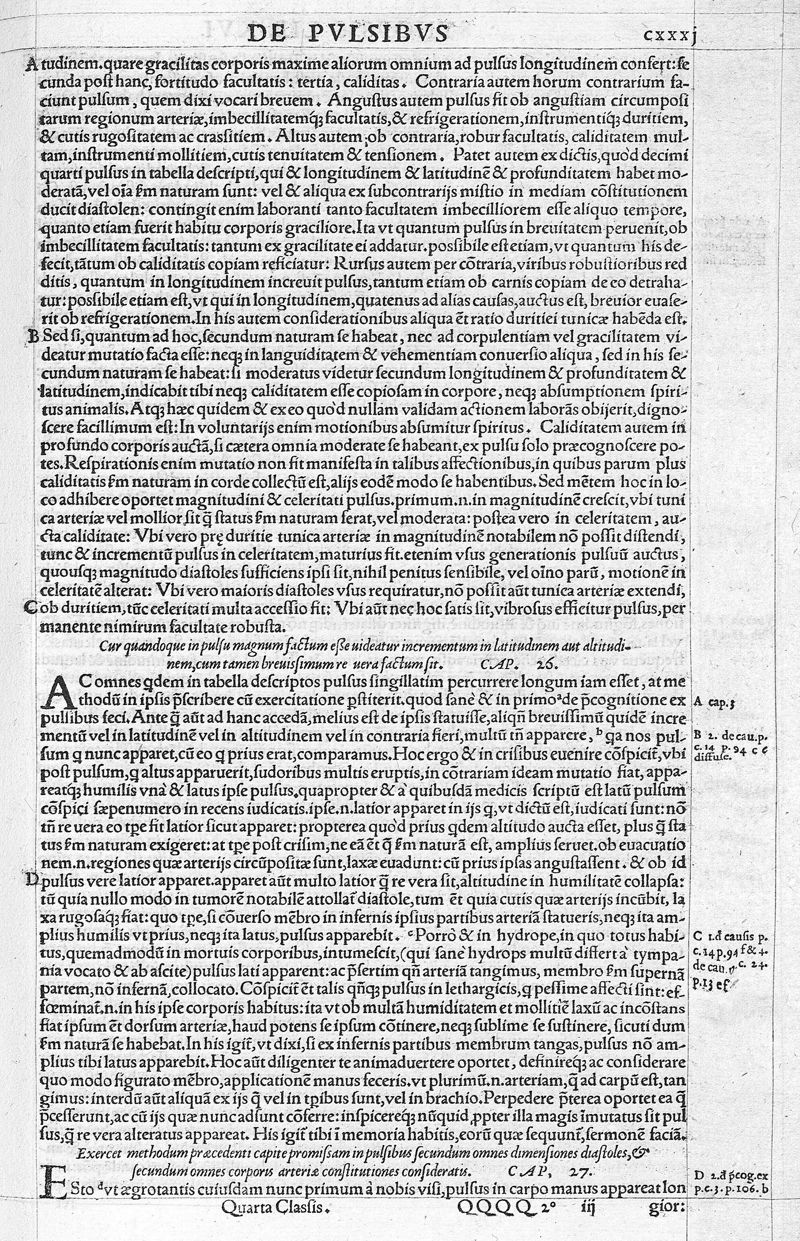 DE PVLSIBVS cxxxj
A tudinem. quare gracilitas corporis maxime aliorum omnium ad pulsus longitudinem confert: se
cunda post hanc, fortitudo facultatis: tertia, caliditas. Contraria autem horum contrarium fa-
ciunt pulsum, quem dixi vocari breuem. Angustus autem pulsus fit ob angustiam circumposi
tarum regionum arteriæ, imbecillitatemq; facultatis, & refrigerationem, instrumentiq; duritiem,
& cutis rugositatem ac crassitiem. Altus autem ob contraria, robur facultatis, caliditatem mul-
tam, instrumenti mollitiem, cutis tenuitatem & tensionem. Patet autem ex dictis, quòd decimi
quarti pulsus in tabella descripti, qui & longitudinem & latitudinē & profunditatem habet mo-
deratā, vel oīa ſm naturam sunt: vel & aliqua ex subcontrarijs mistio in mediam cōstitutionem
ducit diastolen: contingit enim laboranti tanto facultatem imbecilliorem esse aliquo tempore,
quanto etiam fuerit habitu corporis graciliore. Ita vt quantum pulsus in breuitatem peruenit, ob
imbecillitatem facultatis: tantum ex gracilitate ei addatur. possibile est etiam, vt quantum his de-
fecit, tātum ob caliditatis copiam reficiatur: Rursus autem per cōtraria, viribus robustioribus red
ditis, quantum in longitudinem increuit pulsus, tantum etiam ob carnis copiam de eo detraha-
tur: possibile etiam est, vt qui in longitudinem, quatenus ad alias causas, auctus est, breuior euase-
rit ob refrigerationem. In his autem considerationibus aliqua ēt ratio duritiei tunicæ habēda est.
B Sed si, quantum ad hoc, secundum naturam se habeat, nec ad corpulentiam vel gracilitatem vi-
deatur mutatio facta esse: neq; in languiditatem & vehementiam conuersio aliqua, sed in his se-
cundum naturam se habeat: si moderatus videtur secundum longitudinem & profunditatem &
latitudinem, indicabit tibi neq; caliditatem esse copiosam in corpore, neq; absumptionem spiri-
tus animalis. Atq; hæc quidem & ex eo quòd nullam validam actionem laborās obijerit, digno-
scere facillimum est: In voluntarijs enim motionibus absumitur spiritus. Caliditatem autem in
profundo corporis auctā, si cætera omnia moderate se habeant, ex pulsu solo præcognoscere po-
tes. Respirationis enim mutatio non fit manifesta in talibus affectionibus, in quibus parum plus
caliditatis ſm naturam in corde collectū est, alijs eodē modo se habentibus. Sed mētem hoc in lo-
co adhibere oportet magnitudini & celeritati pulsus. primum .n. in magnitudinē crescit, vbi tuni
ca arteriæ vel mollior sit q̄ status ſm naturam ferat, vel moderata: postea vero in celeritatem, au-
cta caliditate: Vbi vero prę duritie tunica arteriæ in magnitudinē notabilem nō possit distendi,
tunc & incrementū pulsus in celeritatem, maturius fit. etenim vsus generationis pulsuū auctus,
quousq; magnitudo diastoles sufficiens ipsi sit, nihil penitus sensibile, vel oīno parū, motionē in
celeritatē alterat: Vbi vero maioris diastoles vsus requiratur, nō possit aūt tunica arteriæ extendi,
C ob duritiem, tūc celeritati multa accessio fit: Vbi aūt nec hoc satis sit, vibrosus efficitur pulsus, per
manente nimirum facultate robusta.
Cur quandoque in pulsu magnum factum esse uideatur incrementum in latitudinem aut altitudi-
nem, cum tamen breuissimum re uera factum sit. CAP. 26.
AC omnes qdem in tabella descriptos pulsus singillatim percurrere longum iam esset, at me
thodū in ipsis p̄scribere cū exercitatione p̄stiterit. quod sanè & in primo ᵃ de p̄cognitione ex
pulsibus feci. Ante q̄ aūt ad hanc accedā, melius est de ipsis statuisse, aliqn̄ breuissimū quidē incre
mentū vel in latitudinē vel in altitudinem vel in contraria fieri, multū tn̄ apparere, ᵇ qa nos pul-
sum q nunc apparet, cū eo q prius erat, comparamus. Hoc ergo & in crisibus euenire cōspicit̄, vbi
post pulsum, q altus apparuerit, sudoribus multis eruptis, in cōtrariam ideam mutatio fiat, appa-
reatq; humilis vnà & latus ipse pulsus. quapropter & à quibusdā medicis scriptū est latū pulsum
cōspici sæpenumero in recens iudicatis. ipse .n. latior apparet in ijs q, vt dictū est, iudicati sunt: nō
tn̄ re vera eo tpe fit latior sicut apparet: propterea quòd prius qdem altitudo aucta esset, plus q̄ sta
tus ſm naturam exigeret: at tpe post crisim, ne eā ēt q̄ ſm naturā est, amplius seruet. ob euacuatio
nem .n. regiones quæ arterijs circūpositæ sunt, laxæ euadunt: cū prius ipsas angustassent. & ob id
D pulsus vere latior apparet. apparet aūt multo latior q̄ re vera sit, altitudine in humilitatē collapsa:
tū quia nullo modo in tumorē notabilē attollat̄ diastole, tum ēt quia cutis quæ arterijs incūbit, la
xa rugosaq; fiat: quo tpe, si cōuerso mēbro in infernis ipsius partibus arteriā statueris, neq; ita am-
plius humilis vt prius, neq; ita latus, pulsus apparebit. ᶜ Porrò & in hydrope, in quo totus habi-
tus, quemadmodū in mortuis corporibus, intumescit, (qui sanè hydrops multū differt à tympa-
nia vocato & ab ascite) pulsus lati apparent: ac p̄sertim qn̄ arteriā tangimus, membro ſm supernā
partem, nō infernā, collocato. Cōspicit̄ ēt talis qn̄q; pulsus in lethargicis, q pessime affecti sint: ef-
fœminat̄ .n. in his ipse corporis habitus: ita vt ob multā humiditatem et mollitiē laxū ac incōstans
fiat ipsum ēt dorsum arteriæ, haud potens se ipsum cōtinere, neq; sublime se sustinere, sicuti dum
ſm naturā se habebat. In his igit̄, vt dixi, si ex infernis partibus membrum tangas, pulsus nō am-
plius tibi latus apparebit. Hoc aūt diligenter te animaduertere oportet, definireq; ac considerare
quo modo figurato mēbro, applicationē manus feceris. vt plurimū .n. arteriam, q̄ ad carpū est, tan
gimus: interdū aūt aliquā ex ijs q̄ vel in tpibus sunt, vel in brachio. Perpedere p̄terea oportet ea q̄
p̄cesserunt, ac cū ijs quæ nunc adsunt cōferre: inspicereq; nūquid, ppter illa magis īmutatus sit pul
sus, q̄ re vera alteratus appareat. His igit̄ tibi ī memoria habitis, eorū quæ sequunt̄, sermonē faciā.
Exercet methodum præcedenti capite promissam in pulsibus secundum omnes dimensiones diastoles, &
secundum omnes corporis arteriæ constitutiones consideratis. CAP, 27.
ESto ᵈ vt ægrotantis cuiusdam nunc primum à nobis visi, pulsus in carpo manus appareat lon
Quarta Classis. QQQQ 2° iij gior:
A cap. 3
B 2. de cau. p.
c. 14 p. 94 c e
diffuse.
C 1. d̄ causis p.
c. 14. p. 94 f & 4.
de cau. p. c. 24.
p. 13 e f.
D 2. d̄ p̄cog. ex
p. c. 3. p. 106. b